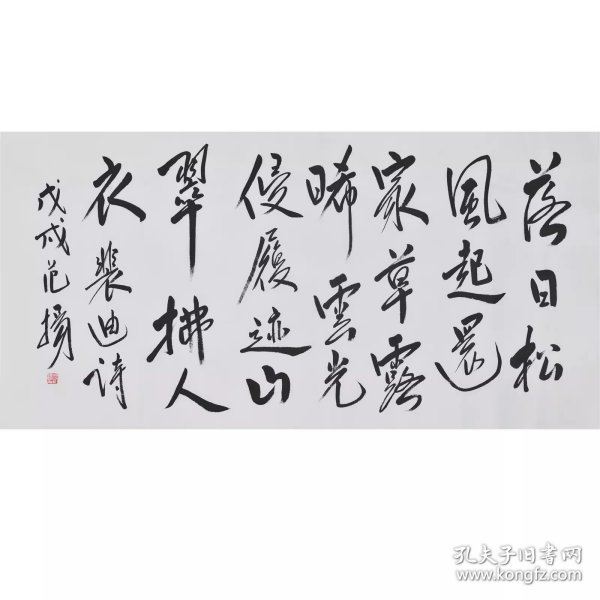 落日松
風起還
家草露
晞雲光
侵履迹山
翠拂人
衣裴迪诗
戊戌范揚
孔夫子旧书网
www.kongfz.com